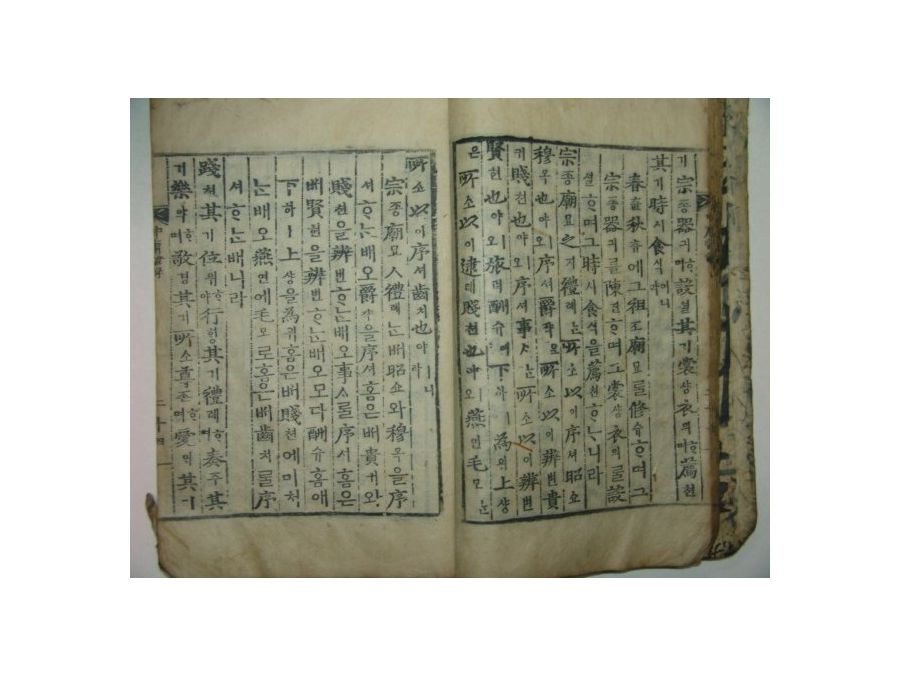 기宗종器긔ᄒᆞ며設셜其기裳샹衣의ᄒᆞ며薦쳔
其기時시食식이니라
春츈秋츄에그祖조廟묘ᄅᆞᆯ修슈ᄒᆞ며그
宗종器긔ᄅᆞᆯ陳딘ᄒᆞ며그裳샹衣의ᄅᆞᆯ設
셜ᄒᆞ며그時시食식을薦쳔ᄒᆞᄂᆞ니라
宗종廟묘之지禮례ᄂᆞᆫ所소以이序셔昭쇼
穆목也야ㅣ오序셔爵쟉은所소以이辨변貴
귀賤쳔也야ㅣ오序셔事ᄉᆞᄂᆞᆫ所소以이辨변
賢현也야ㅣ오旅려酬슈에下하ㅣ爲위上샹
은所소以이逮톄賤쳔也야ㅣ오燕연毛모ᄂᆞᆫ
所소以이序셔齒치也야ㅣ니라
宗종廟묘人禮례ᄂᆞᆫ배昭쇼와穆목을序
셔ᄒᆞᄂᆞᆫ배오爵쟉을序셔홈은배貴귀와
賤쳔을辨변ᄒᆞᄂᆞᆫ배오事ᄉᆞᄅᆞᆯ序셔홈은
배賢현을辨변ᄒᆞᄂᆞᆫ배오모다酬슈홈애
下하ㅣ上샹을爲위홈은배賤쳔에미처
ᄂᆞᆫ배오燕연에毛모로홈은배齒치ᄅᆞᆯ序
셔ᄒᆞᄂᆞᆫ배니라
踐쳔其기位위ᄒᆞ야行ᄒᆡᆼ其기禮례ᄒᆞ며奏주其
기樂악ᄒᆞ며敬경其기所소尊존ᄒᆞ며愛ᄋᆡ其기
中庸諺解 二十四